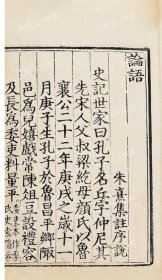 論語
朱熹集註序說
史記世家曰孔子名丘字仲尼其
先宋人父叔梁紇母顏氏以魯
襄公二十二年庚戌之歲十一
月庚子生孔子於魯昌平鄉陬
邑為兒嬉戲常陳俎豆設禮容
及長為委吏料量平